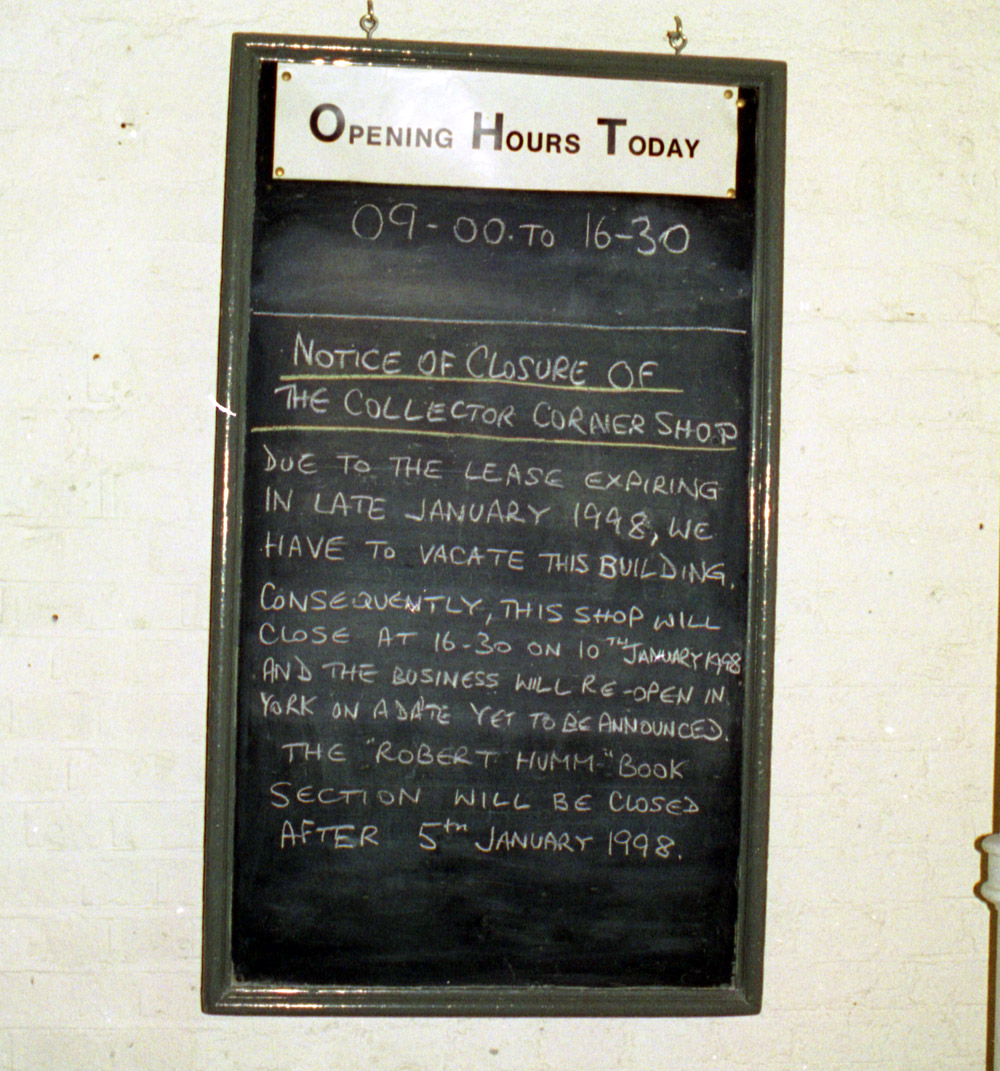 OPENING HOURS TODAY
09-00. TO 16-30
NOTICE OF CLOSURE OF
THE COLLECTOR CORNER SHOP
DUE TO THE LEASE EXPIRING
IN LATE JANUARY 1998, WE
HAVE TO VACATE THIS BUILDING.
CONSEQUENTLY, THIS SHOP WILL
CLOSE AT 16-30 ON 10TH JANUARY 1998
AND THE BUSINESS WILL RE-OPEN IN
YORK ON A DATE YET TO BE ANNOUNCED.
THE "ROBERT HUMM" BOOK
SECTION WILL BE CLOSED
AFTER 5th JANUARY 1998.